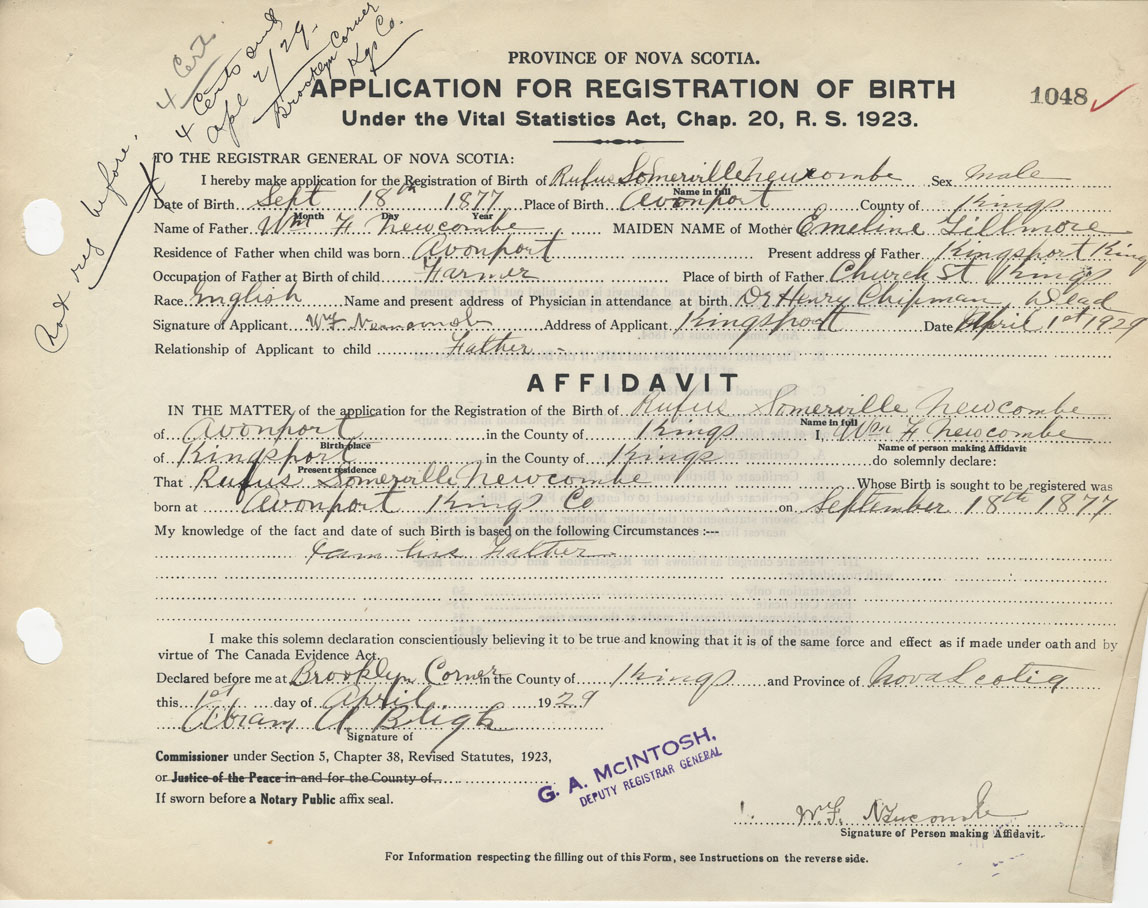 4 Certs
4 Certs and
apl 2/29.
Brooklyn Corner
Kgs Co.
Not reg before.
PROVINCE OF NOVA SCOTIA.
APPLICATION FOR REGISTRATION OF BIRTH
1048
Under the Vital Statistics Act, Chap. 20, R. S. 1923.
TO THE REGISTRAR GENERAL OF NOVA SCOTIA:
I hereby make application for the Registration of Birth of Rufus Somerville Newcombe Sex Male
Name in full
Date of Birth Sept 18th 1877 Place of Birth Avonport County of Kings
Month Day Year
Name of Father Wm F Newcombe MAIDEN NAME of Mother Emeline Gillmore
Residence of Father when child was born Avonport Present address of Father Kingsport King
Occupation of Father at Birth of child Farmer Place of birth of Father Church St Kings
Race English Name and present address of Physician in attendance at birth Dr Henry Chipman, Dead
Signature of Applicant W F Newcomb Address of Applicant Kingsport Date April 1st 1929
Relationship of Applicant to child Father -
AFFIDAVIT
IN THE MATTER of the application for the Registration of the Birth of Rufus Somerville Newcombe
Name in full
of Avonport in the County of Kings I, Wm F Newcombe
Birth place Name of person making Affidavit
of Kingsport in the County of Kings do solemnly declare:
Present residence
That Rufus Somerville Newcombe Whose Birth is sought to be registered was
born at Avonport Kings Co on September 18th 1877
My knowledge of the fact and date of such Birth is based on the following Circumstances :---
I am his Father
I make this solemn declaration conscientiously believing it to be true and knowing that it is of the same force and effect as if made under oath and by
virtue of The Canada Evidence Act.
Declared before me at Brooklyn Corner in the County of Kings and Province of Nova Scotia
this 1st day of April 1929
Abram A Bligh
Signature of
Commissioner under Section 5, Chapter 38, Revised Statutes, 1923,
or Justice of the Peace in and for the County of
If sworn before a Notary Public affix seal.
G. A. McINTOSH,
DEPUTY REGISTRAR GENERAL
W. F. Newcombe
Signature of Person making Affidavit.
For Information respecting the filling out of this Form, see Instructions on the reverse side.